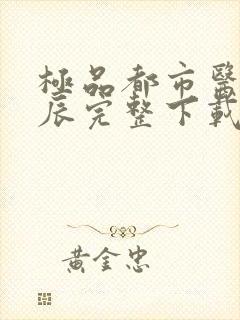 極品都市醫
辰完整下載
黃金忠